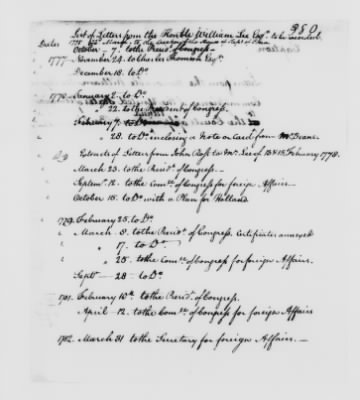 350
List of Letters from the Honble William Lee Esqr. to be recorded.
October 7. to the Presidt. of Congress
1777 November 24. to Charles Thomson Esqr.
December 18. to Do.
1778 January 2. to Do.
" 22. to the President of Congress.
February 7. to Do.
" 28. to Do. enclosing a Note or Card from Mr. Deane
Extracts of Letters from John Ross to Mr. Lee of 13 & 18 February 1778.
March 23. to the Presidt. of Congress.
Septemr. 12. to the Comee. of Congress for foreign Affairs
October 15. to Do. with a Plan for Holland
1779 February 25. to Do.
" March 8. to the Presidt. of Congress, Certificates annexed
" 17. to Do.
" 25. to the Comee. of Congress for foreign Affairs.
Septr. 28 to Do.
1781. February 10th. to the Presidt. of Congress.
April 12. to the Comee. of Congress for foreign Affairs
1782. March 31 to the Secretary for foreign Affairs.